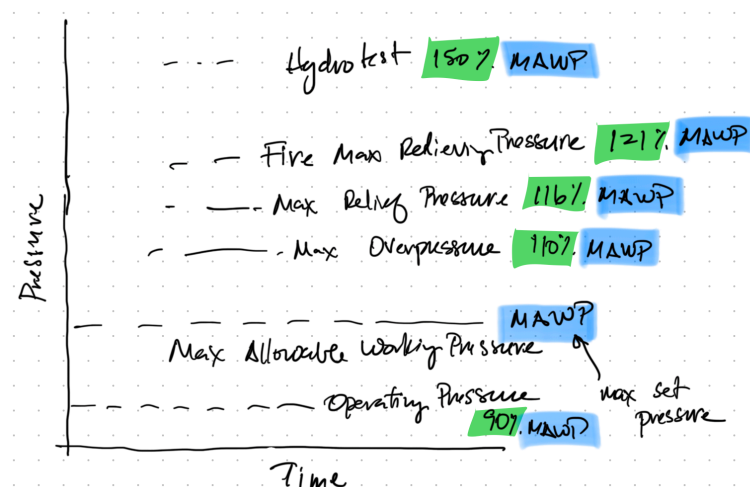 Hydrotest 150% MAWP
Fire Max Relieving Pressure 121% MAWP
Max Relief Pressure 116% MAWP
Max Overpressure 110% MAWP
Pressure
MAWP
Max Allowable Working Pressure
max set
pressure
Operating Pressure
90% MAWP
Time